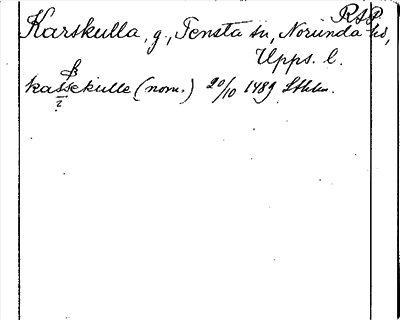 RAP
Karskulla, g., Tensta sn, Norunda hd,
Upps. l.
ß
kassekulle (nom.) 20/10 1489 Sthlm.
?